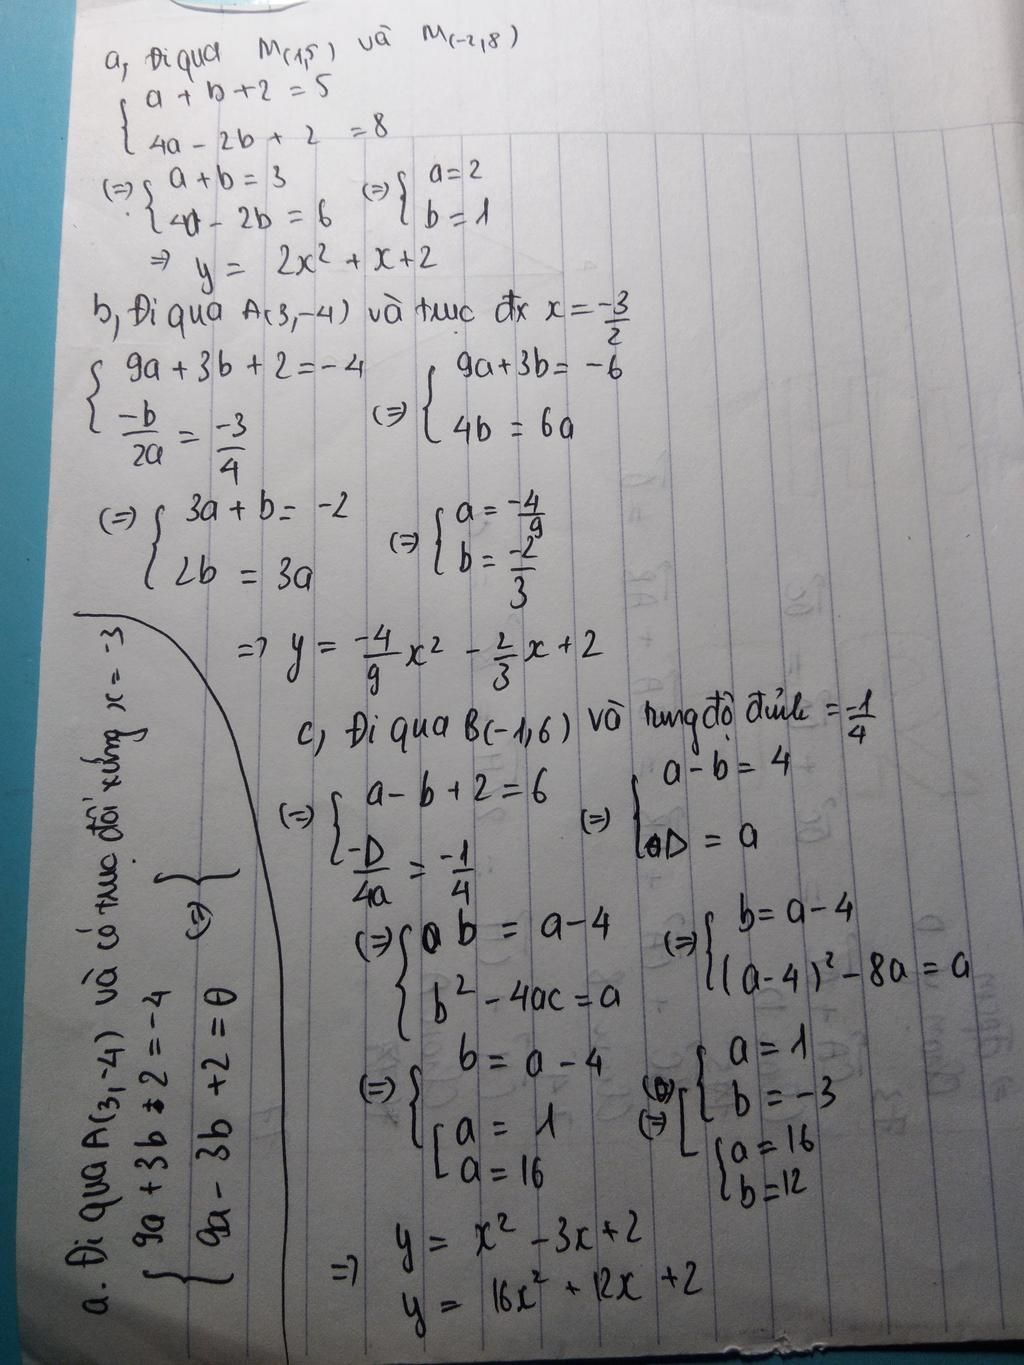 a, Đi qua M(1,5) và M(-2,8)
{ a + b + 2 = 5
4a - 2b + 2 = 8
(=) { a + b = 3 (=) { a = 2
4a - 2b = 6 b = 1
=> y = 2x² + x + 2
b, Đi qua A(3,-4) và trục đx x = -3/2
{ 9a + 3b + 2 = -4 (=) { 9a + 3b = -6
-b/2a = -3/4 4b = 6a
(=) { 3a + b = -2 (=) { a = -4/9
2b = 3a b = -2/3
=> y = -4/9 x² - 2/3 x + 2
c, Đi qua B(-1,6) và tung độ đỉnh = -1/4
(=) { a - b + 2 = 6 (=) { a - b = 4
-D/4a = -1/4 D = a
(=) { b = a - 4 (=) { b = a - 4
b² - 4ac = a (a - 4)² - 8a = a
(=) { b = a - 4 (=) [ { a = 1
[ a = 1 b = -3
a = 16 { a = 16
b = 12
=> y = x² - 3x + 2
y = 16x² + 12x + 2
a. Đi qua A(3,-4) và có trục đối xứng x = -3
{ 9a + 3b + 2 = -4 (=) {
9a - 3b + 2 = 0